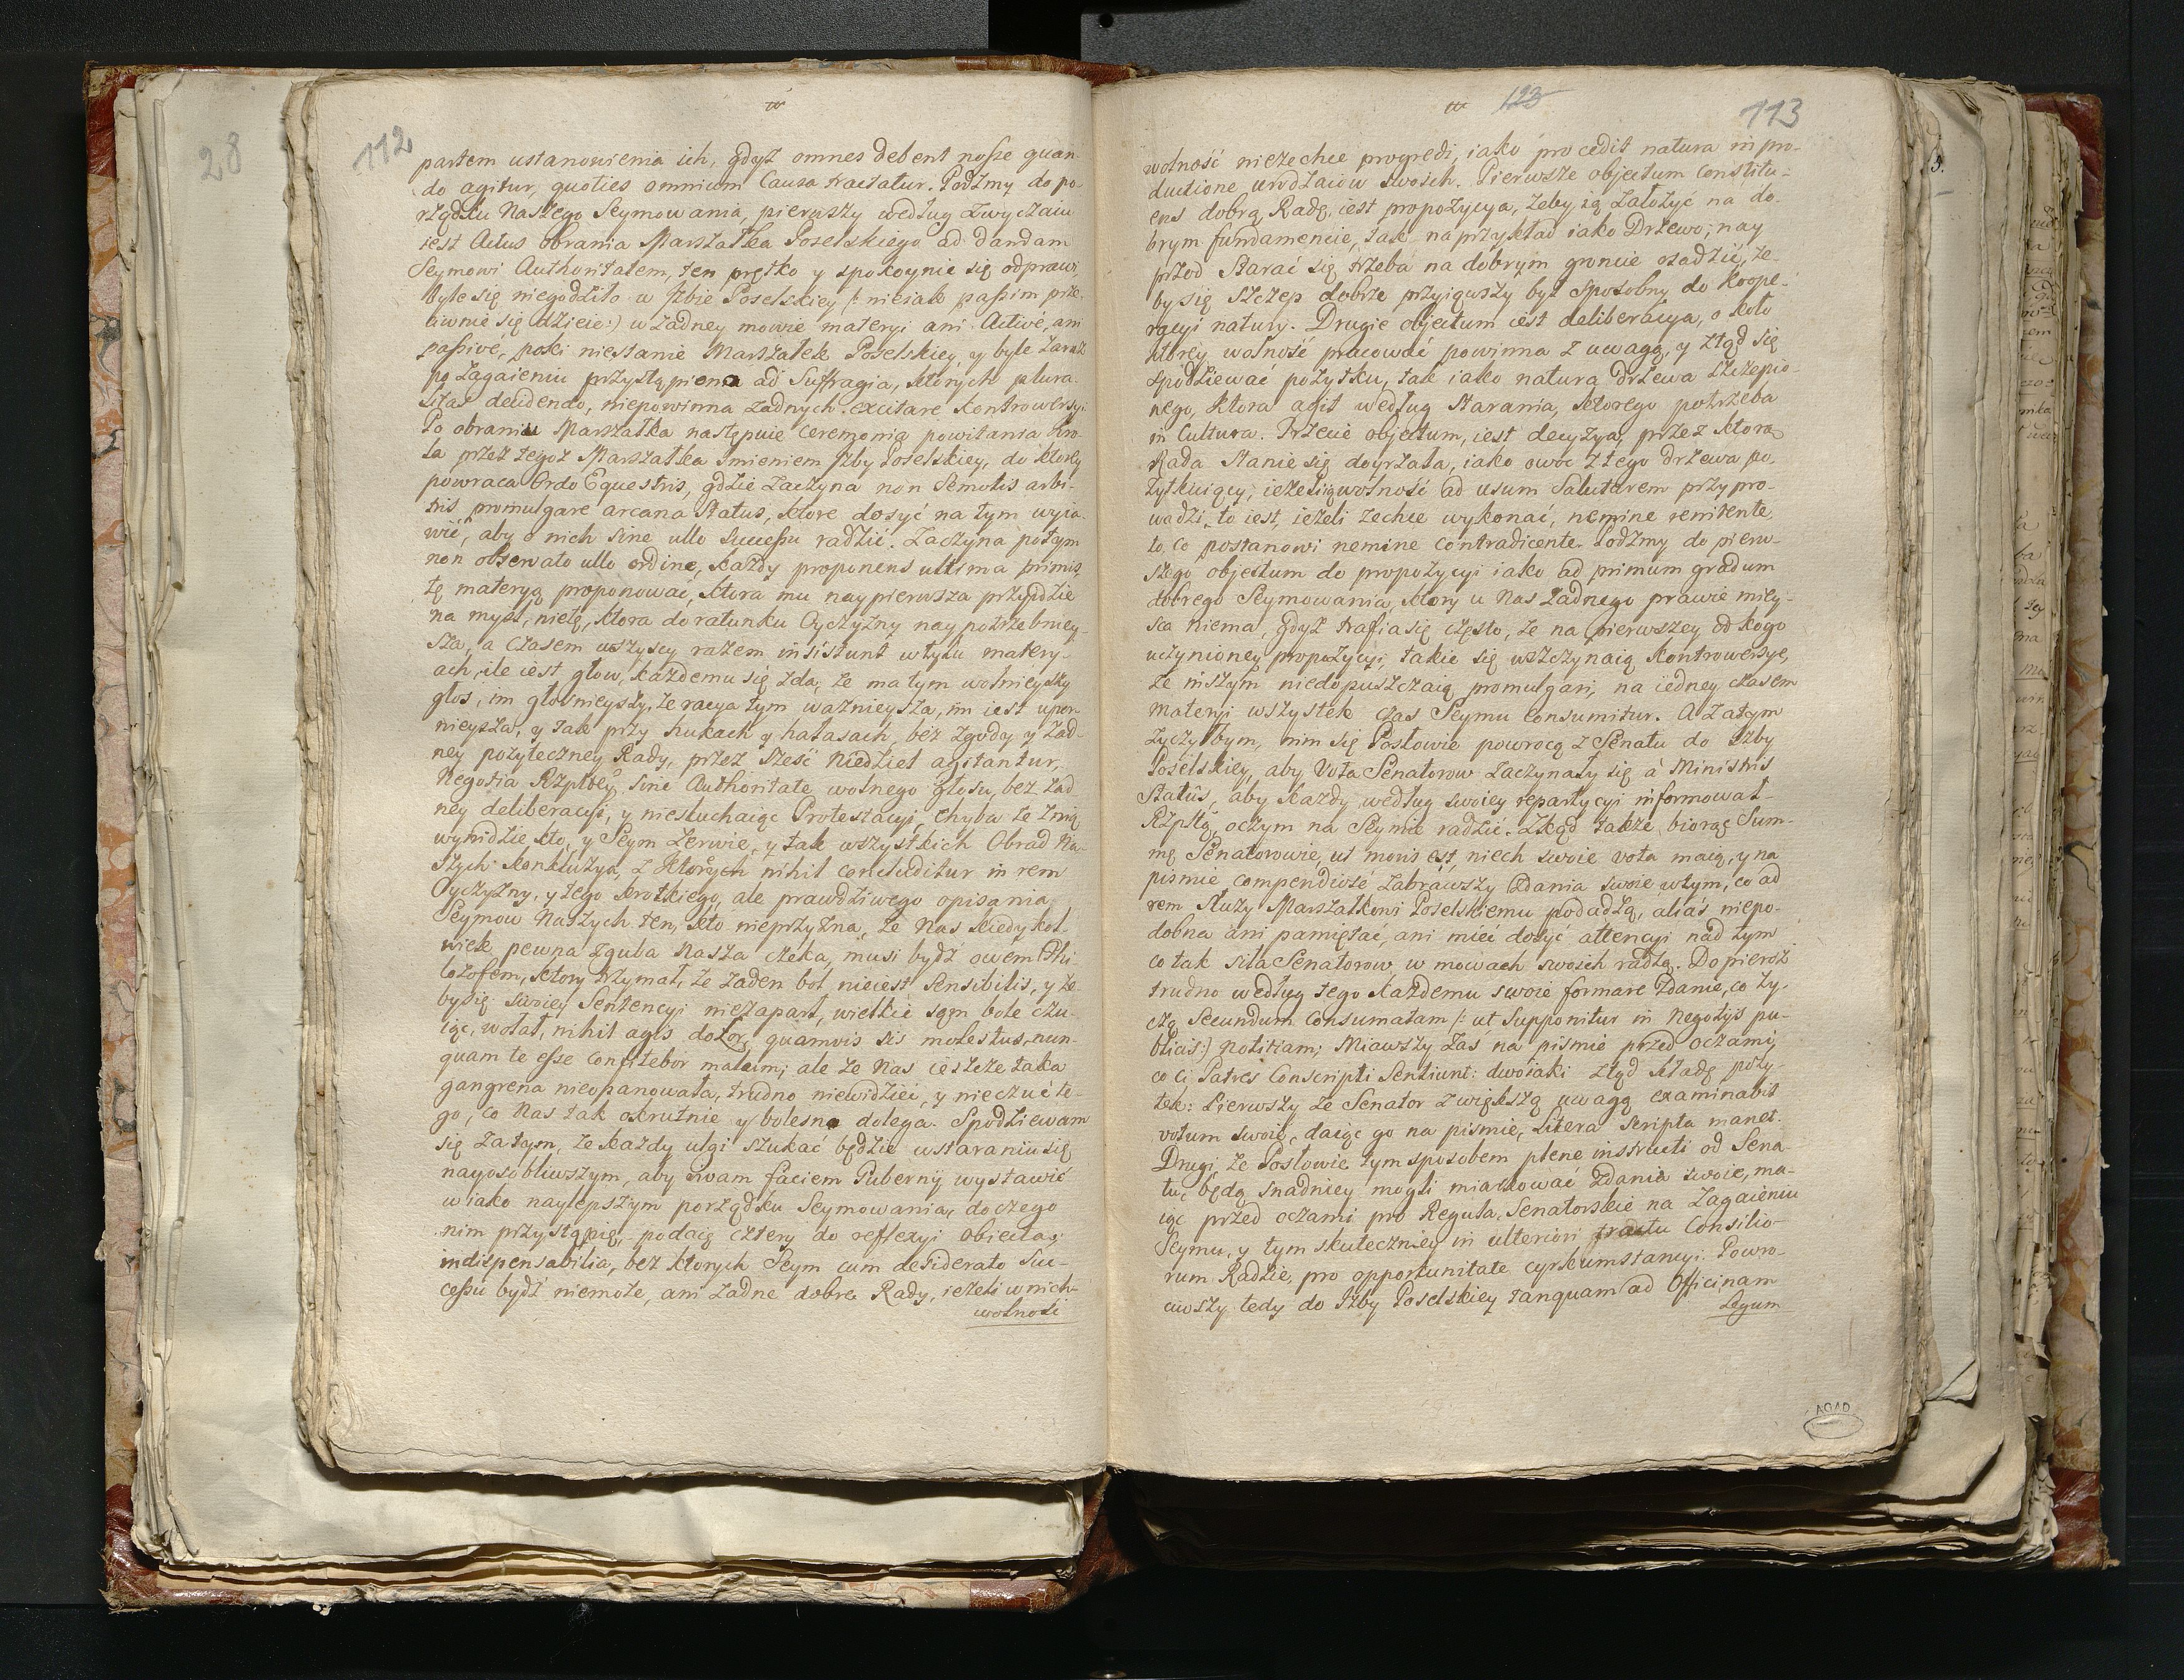 28
112
partem ustanowienia ich, gdyż omnes debent nosse quan-
do agitur, quoties omnium Causa tractatur. Podźmy do po-
rządku Naszego Seymowania, pierwszy według zwyczaiu
iest Actus obrania Marszałka Poselskiego ad dandam
Seymowi Authoritatem, ten prętko y spokoynie się odprawi,
byle się niegodziło w Izbie Poselskiey (: nieiak passim prze-
ciwnie się dzieie:) w żadney mowie materyi ani Activé, ani
passivé, poki niestanie Marszałek Poselskiey, y byle zaraz
po zagaieniu przystąpiono ad Suffragia, których plura-
litas decidendo, niepowinna żadnych excitare kontrowersyi.
Po obraniu Marszałka następuie ceremonia powitania Kro-
la przez tegoż Marszałka imieniem Izby Poselskiey, do ktorey
powraca Ordo Equestris, gdzie zaczyna non Semotis arbi-
tris promulgare arcana Status, ktore dosyć na tym wyia-
wić, aby o nich sine ullo Successu radzić. Zaczyna potym
non observato ullo ordine, każdy proponens ultima primis,
tę materyą proponować, ktora mu naypierwsza przyidzie
na myśl, nietę, ktora do ratunku Oyczyzny naypotrzebniey-
sza, a czasem wszyscy razem insistunt wtylu matery-
ach, ile iest głow, każdemu się zda, że ma tym wolnieyszy
głos, im głosnieyszy, że racya tym ważnieysza, im iest upor-
nieysza, y tak przy hukach y hałasach, bez zgody y żad-
ney pożyteczney Rady, przez sześć Niedziel agitantur,
Negotia Rzpltey, sine Authoritate wolnego głosu, bez żad-
ney deliberacyi, y niesłuchaiąc Protestacyi, chyba że z nią
wynidzie kto, y Seym zerwie, y tak wszystkich Obrad Na-
szych konkluzya, z ktorych nihil concluditur in rem
Oyczyzny, y tego krotkiego, ale prawdziwego opisania
Seymow Naszych ten, kto nieprzyzna, że Nas kiedykol-
wiek pewna zguba Nasza czeka, musi bydź owem Phi-
lozofem, ktory trzymał, że żaden bol nieiest Sensibilis, y że-
by się swoiey Sentencyi niezaparł, wielkie sam bole czu-
iąc, wołał, nihil agis dolor, quamvis sis molestus, nun-
quam te esse confitebor malum; ale że Nas ieszcze taka
gangrena nieopanowała, trudno niewidzieć, y nieczuć te-
go, co Nas tak okrutnie y bolesno dolega. Spodziewam
się zatym, że każdy ulgi szukać będzie wstaraniu się
nayosobliwszym, aby novam faciem Puberny wystawić
w iako naylepszym porządku Seymowania, do czego
nim przystąpię, podaię cztery do reflexyi obiecta
indispensabilia, bez ktorych Seym cum desiderato Suc-
cessu bydź niemoże, ani żadne dobre Rady, ieżeli w nich
wolności
123
113
wolność niezechce progredi, iako procedit natura in pro-
ductione urodzaiow swoich. Pierwsze objectum constitu-
ens dobrą Radę, iest propozycya, żeby ią założyć na do-
brym fundamencie, tak naprzykład iako Drzewo; nay
przod starać się trzeba na dobrym groncie osadzić, że-
by się szczep dobrze przyiąwszy był sposobny do koope-
racyi natury. Drugie objectum iest deliberacya, o koło
ktorey wolność pracować powinna z uwagą, y ztąd się
spodziewać pożytku, tak iako natura drzewa szczepio-
nego, ktora agit według starania, ktorego potrzeba
in Cultura. Trzecie objectum, iest decyzya, przez ktorą
Rada stanie się doyrzała, iako owoc z tego drzewa po-
żytkuiący, ieżeli ią wolność ad usum Salutarem przypro-
wadzi, to iest, ieżeli zechce wykonać, nemine renitente,
to, co postanowi nemine contradicente. Podźmy do pierw-
szego objectum do propozycyi iako ad primum gradum
dobrego Seymowania, ktory u Nas żadnego prawie miey-
sca niema, gdyż trafia się często, że na pierwszey od kogo
uczynioney propozycyi, takie się wszczynaią kontrowersye,
że inszym niedopuszczaią promulgari, na iedney czasem
materyi wszystek czas Seymu consumitur. A zatym
życzyłbym, nim się Posłowie powrocą z Senatu do Izby
Poselskiey, aby Vota Senatorow zaczynały się á Ministris
Statûs, aby każdy według swoiey repartycyi informował
Rzpltą, oczym na Seymie radzić. Zkąd także biorąc Sum-
mę Senatorowie, ut moris est, niech swoie vota maią, y na
pismie compendiosé zabrawszy zdania swoie wtym, co ad
rem służy Marszałkowi Poselskiemu podadzą, aliás niepo-
dobna ani pamiętać, ani mieć dosyć attencyi nad tym
co tak siła Senatorow w mowach swoich radzą. Dopieroż
trudno według tego każdemu swoie formare zdanie, co ży-
czą Secundum Consumatam (: ut supponitur in Negotijs pu-
blicis:) notitiam; Miawszy zas na pismie przed oczami,
co ci Patres Conscripti Sentiunt: dwoiaki ztąd kładę poży-
tek: Pierwszy że Senator z większą uwagą examinabit
votum swoie, daiąc go na pismie, Litera scripta manet.
Drugi, że Posłowie tym sposobem plene instructi od Sena-
tu, będą snadniey mogli miarkować zdania swoie, ma-
iąc przed oczami pro Regula, Senatorskie na Zagaieniu
Seymu, y tym skuteczniey in ulteriori tractu Consilio-
rum Radzić, pro opportunitate cyrkumstancyi. Powro-
ciwszy tedy do Izby Poselskiey tanquam ad Officinam
Legum
AGAD